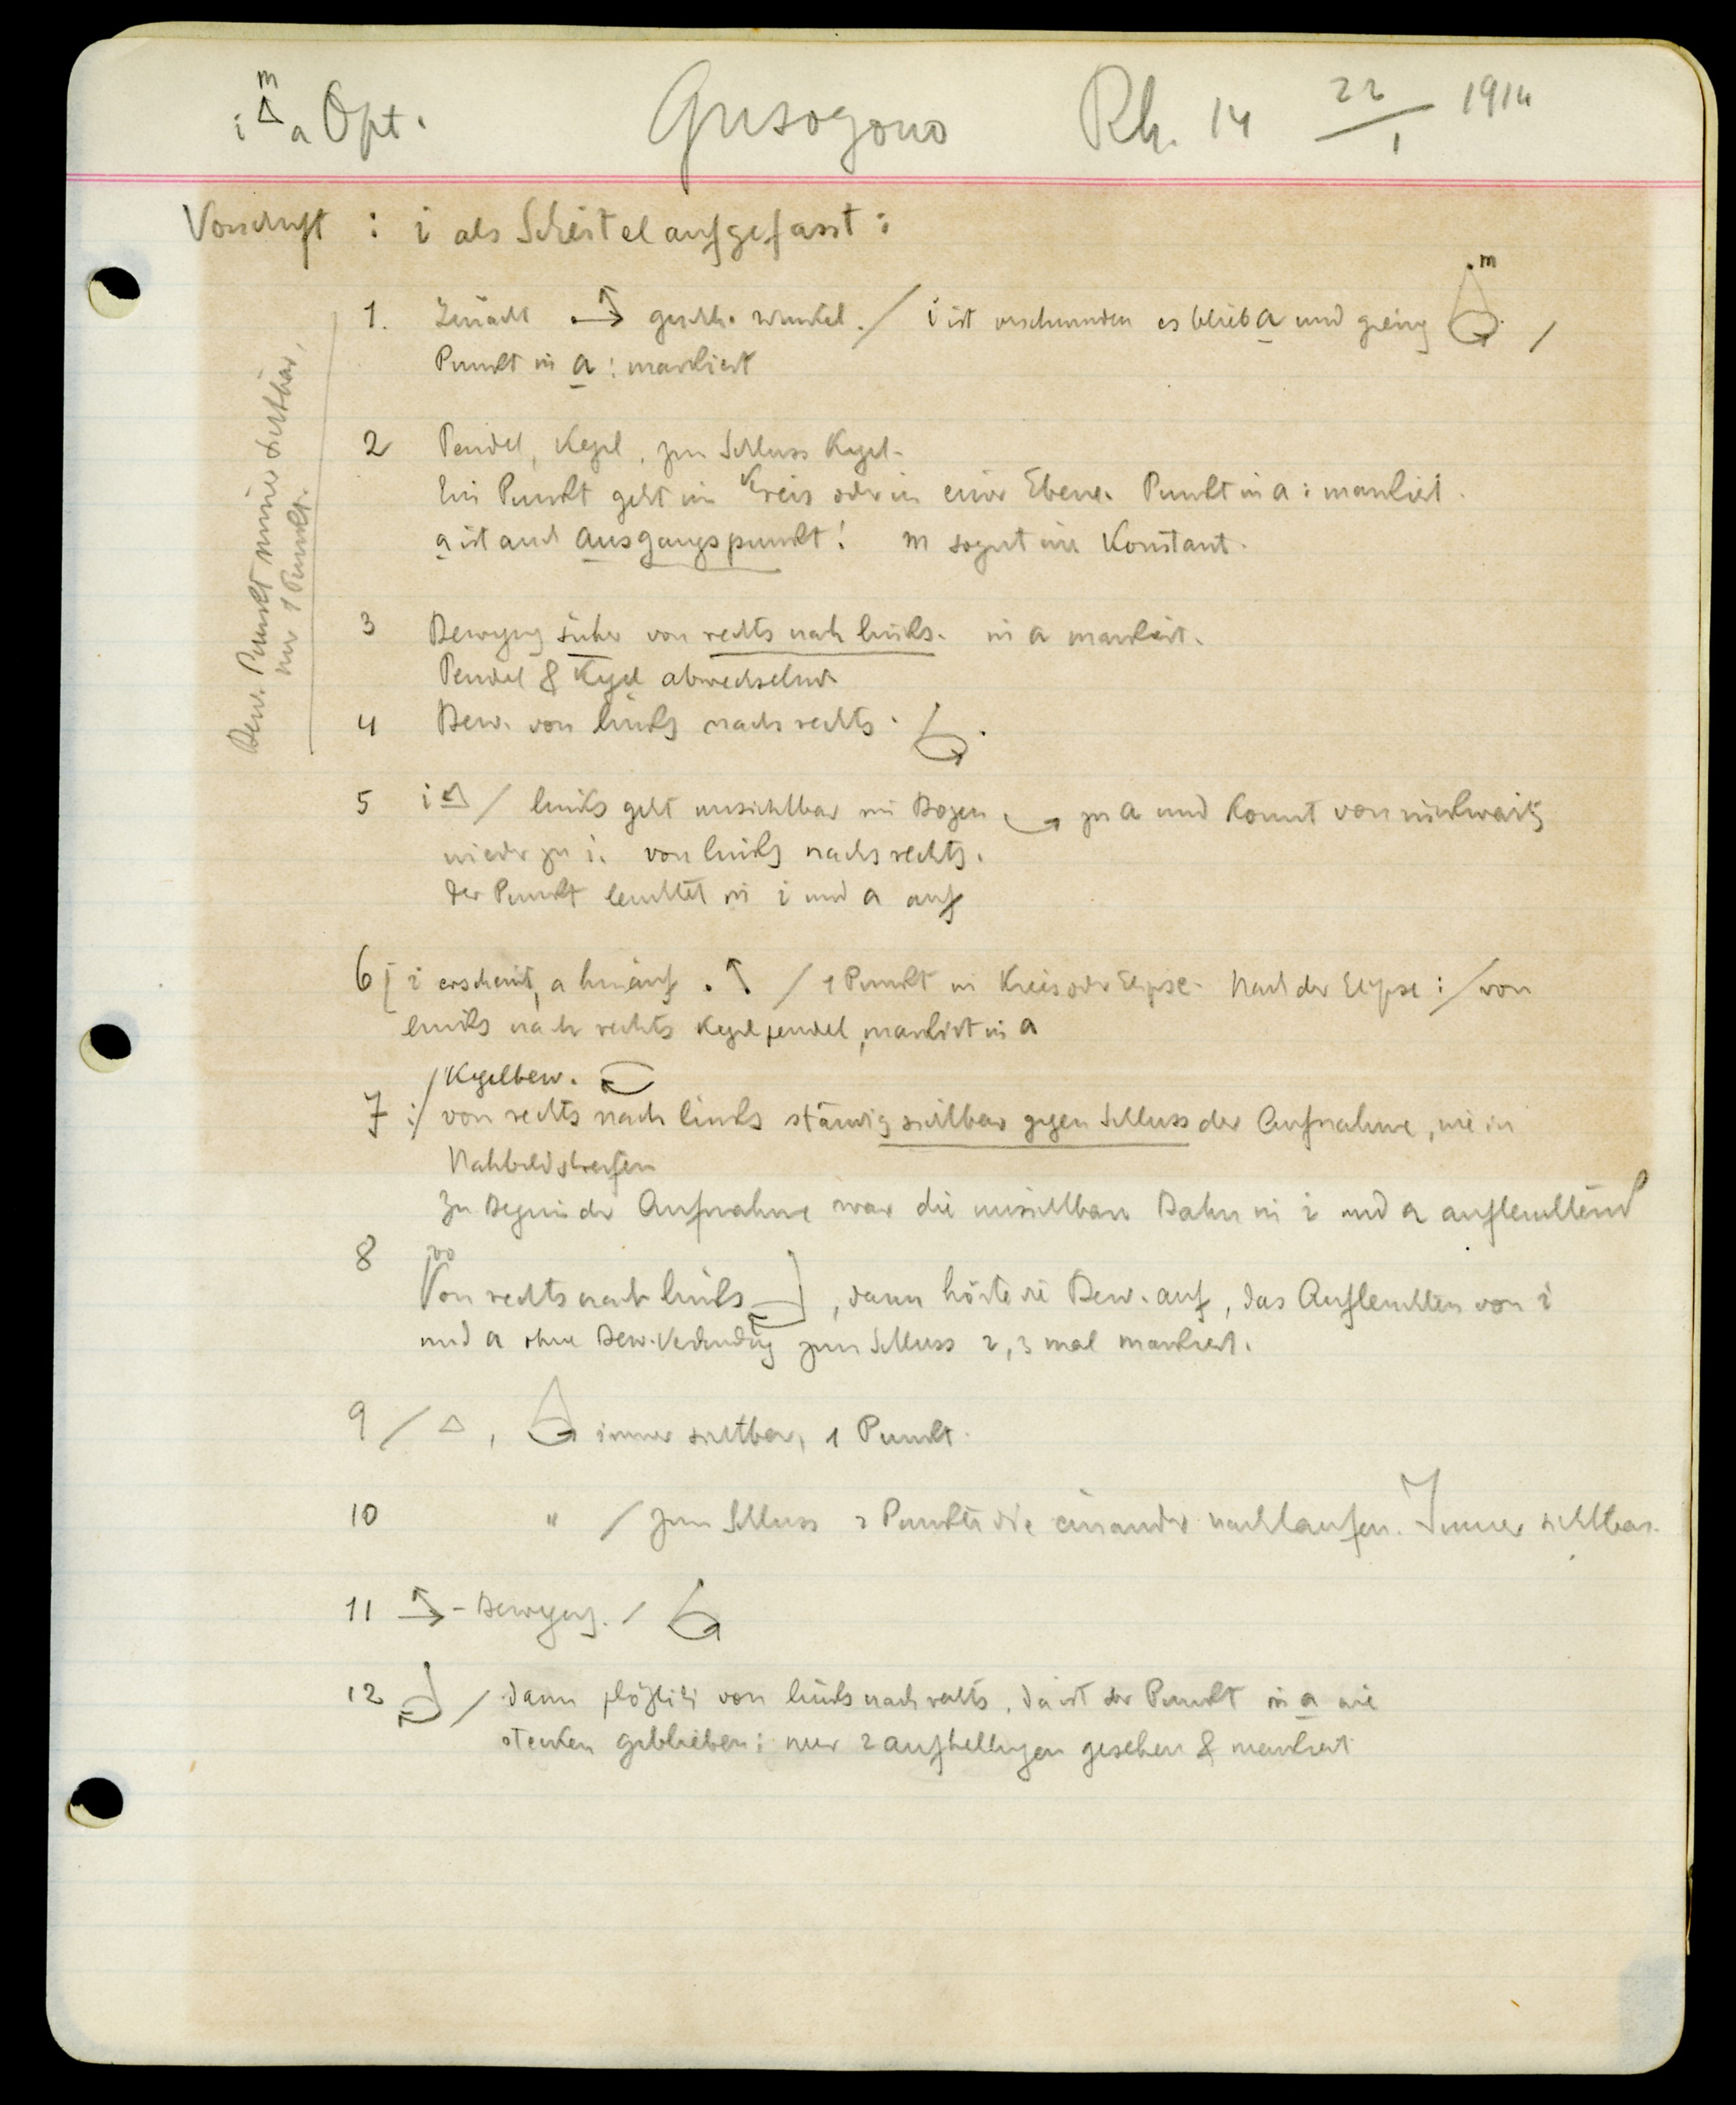 i m a Opt. Gusogono Rh. 14 22/1 1914
Vorschrift : i als Scheitel aufgefasst :
1. Zunächst geschl. Winkel. / i ist verschwunden es blieb a und ging m /
Punkt in a : markiert
Bew. Punkt immer sichtbar,
nur 1 Punkt.
2 Pendel, Kegel, zum Schluss Kegel.
Ein Punkt geht im Kreis oder in einer Ebene. Punkt in a : markiert.
a ist auch Ausgangspunkt! m Konstant.
3 Bewegung sicher von rechts nach links. in a markiert.
Pendel & Kegel abwechselnd.
4 Bew. von links nach rechts.
5 i / links geht unsichtbar im Bogen zu a und kommt von rückwärts
wieder zu i. von links nach rechts.
Der Punkt leuchtet in i und a auf
6 i erscheint, a hinauf . / 1 Punkt in Kreis oder Elipse. Nach der Elipse : / von
links nach rechts Kegelpendel, markirt in a
/ Kegelbew.
7 :/ von rechts nach links ständig sichtbar gegen Schluss der Aufnahme, wie in
Nachbildstreifen
Zu Beginn der Aufnahme war die unsichtbare Bahn in i und a aufleuchtend
8 Von rechts nach links , dann hörte die Bew. auf, das Aufleuchten von i
und a ohne Bew. Verbindung zum Schluss 2, 3 mal markiert.
9 / , immer sichtbar, 1 Punkt.
10 " / zum Schluss 2 Punkte die einander nachlaufen. Immer sichtbar.
11 - Bewegung. /
12 / dann plötzlich von links nach rechts, da ist der Punkt in a wie
stecken geblieben : nur 2 aufhellungen gesehen & markiert